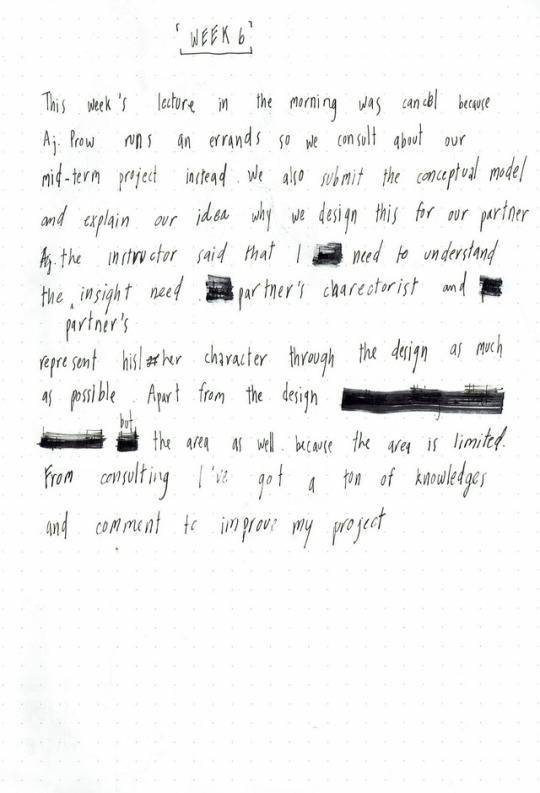 [WEEK 6]
This week's lecture in the morning was cancel because
Aj. Prow runs an errands so we consult about our
mid-term project instead. We also submit the conceptual model
and explain our idea why we design this for our partner
the instructor said that I need to understand
the insight need partner's charectorist and
partner's
represent his/her character through the design as much
as possible. Apart from the design
but
the area as well. because the area is limited.
From consulting I've got a ton of knowledges
and comment to improve my project